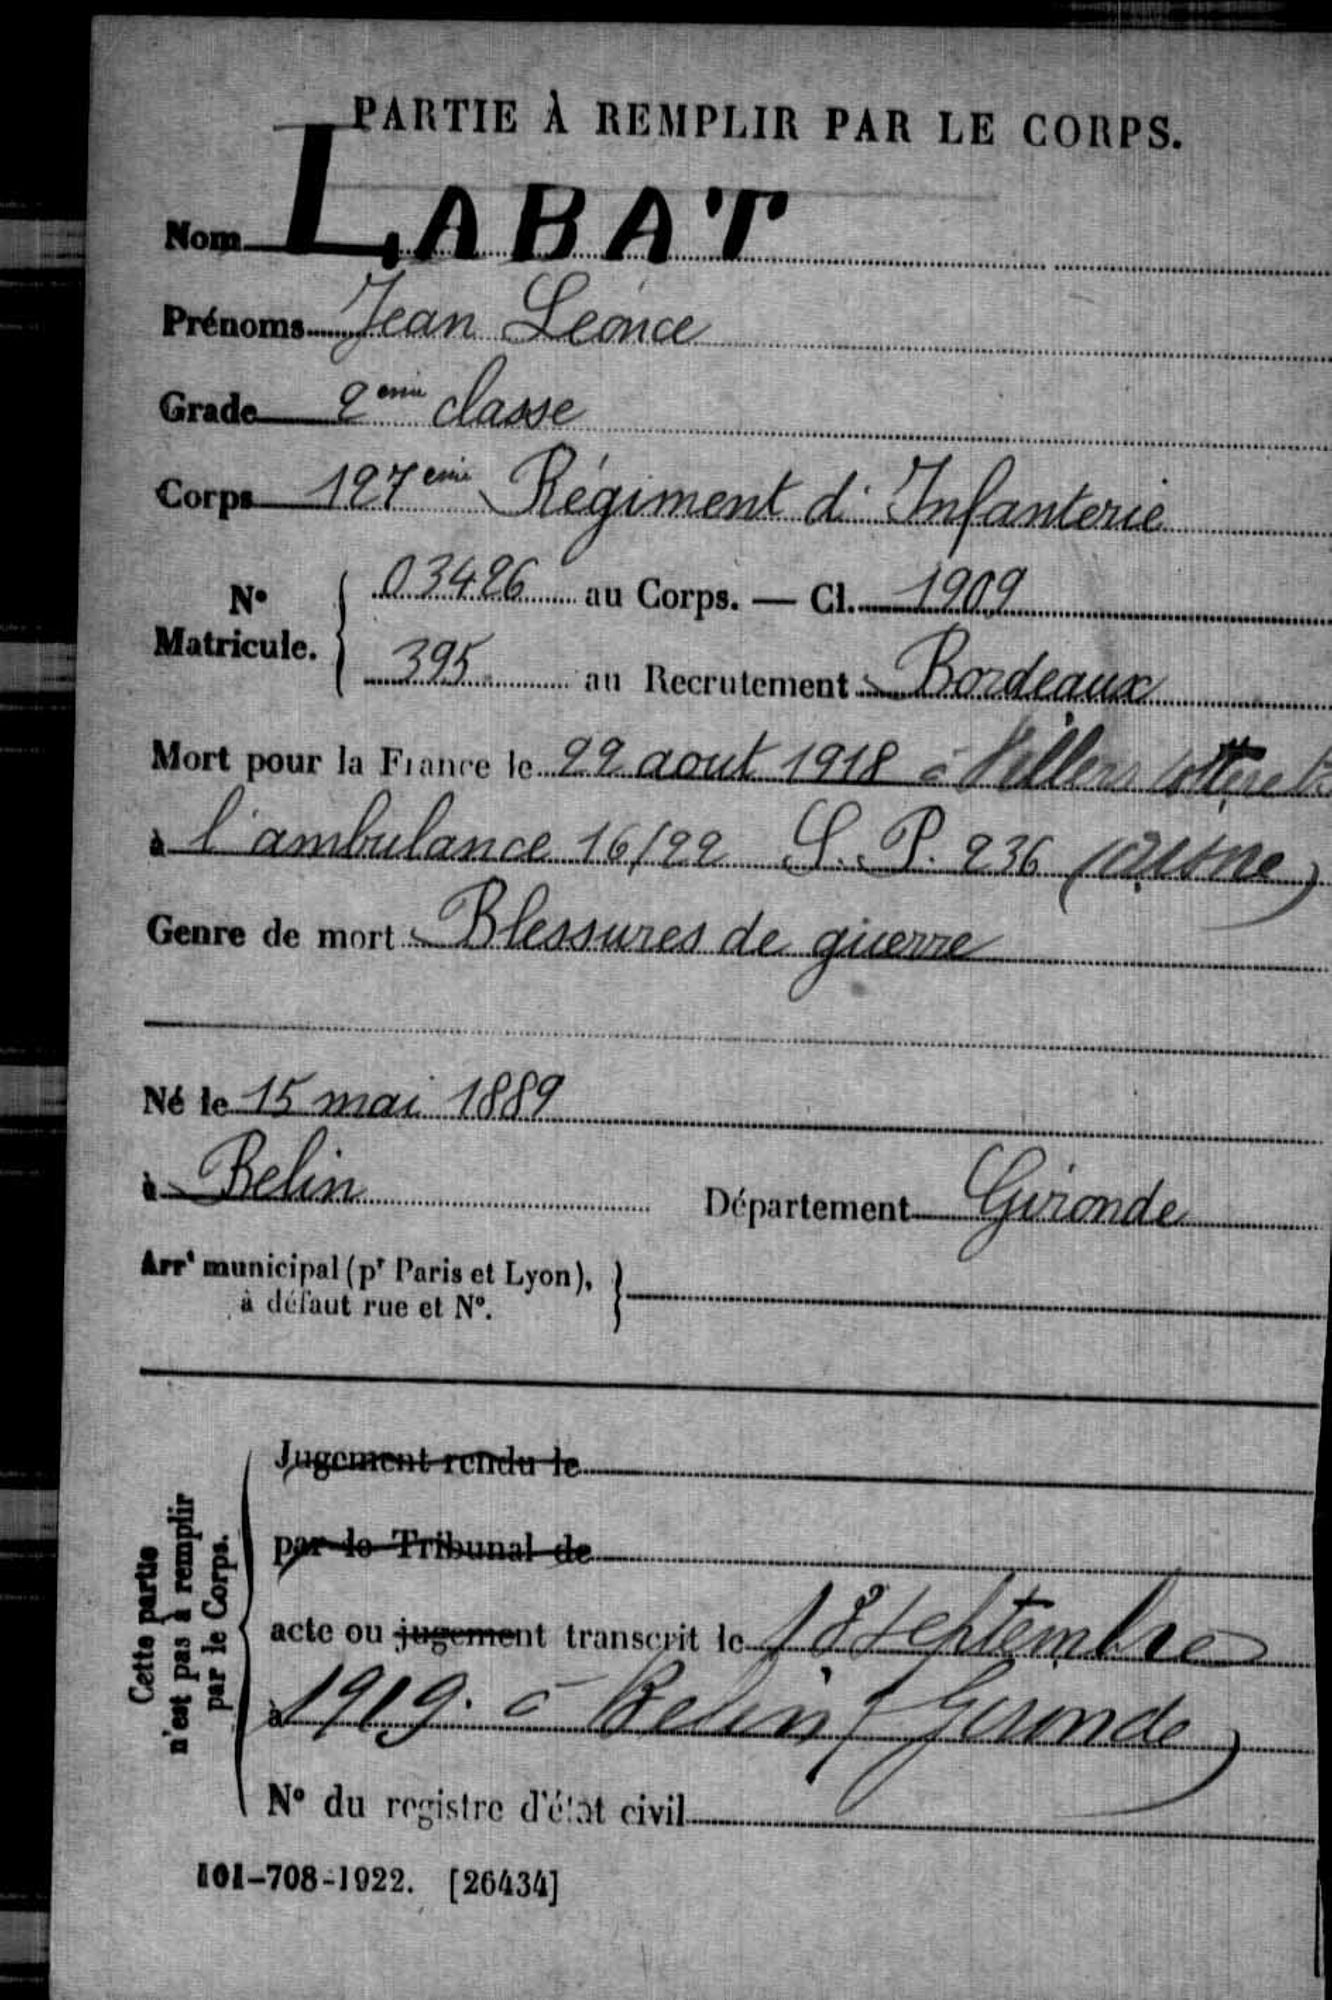 PARTIE À REMPLIR PAR LE CORPS.
Nom LABAT
Prénoms Jean Léonce
Grade 2eme classe
Corps 127eme Régiment d'Infanterie
N° Matricule. { 03426 au Corps. — Cl. 1909
395 au Recrutement Bordeaux
Mort pour la France le 22 aout 1918 à Villers Cotterets
à l'ambulance 16/22 S. P. 236 (Aisne)
Genre de mort Blessures de guerre
Né le 15 mai 1889
à Belin Département Gironde
Arrt municipal (pr Paris et Lyon), }
à défaut rue et N°.
Cette partie
n'est pas à remplir
par le Corps.
Jugement rendu le
par le Tribunal de
acte ou jugement transcrit le 18 septembre
à 1919. à Belin (Gironde)
N° du registre d'état civil
101-708-1922. [26434]